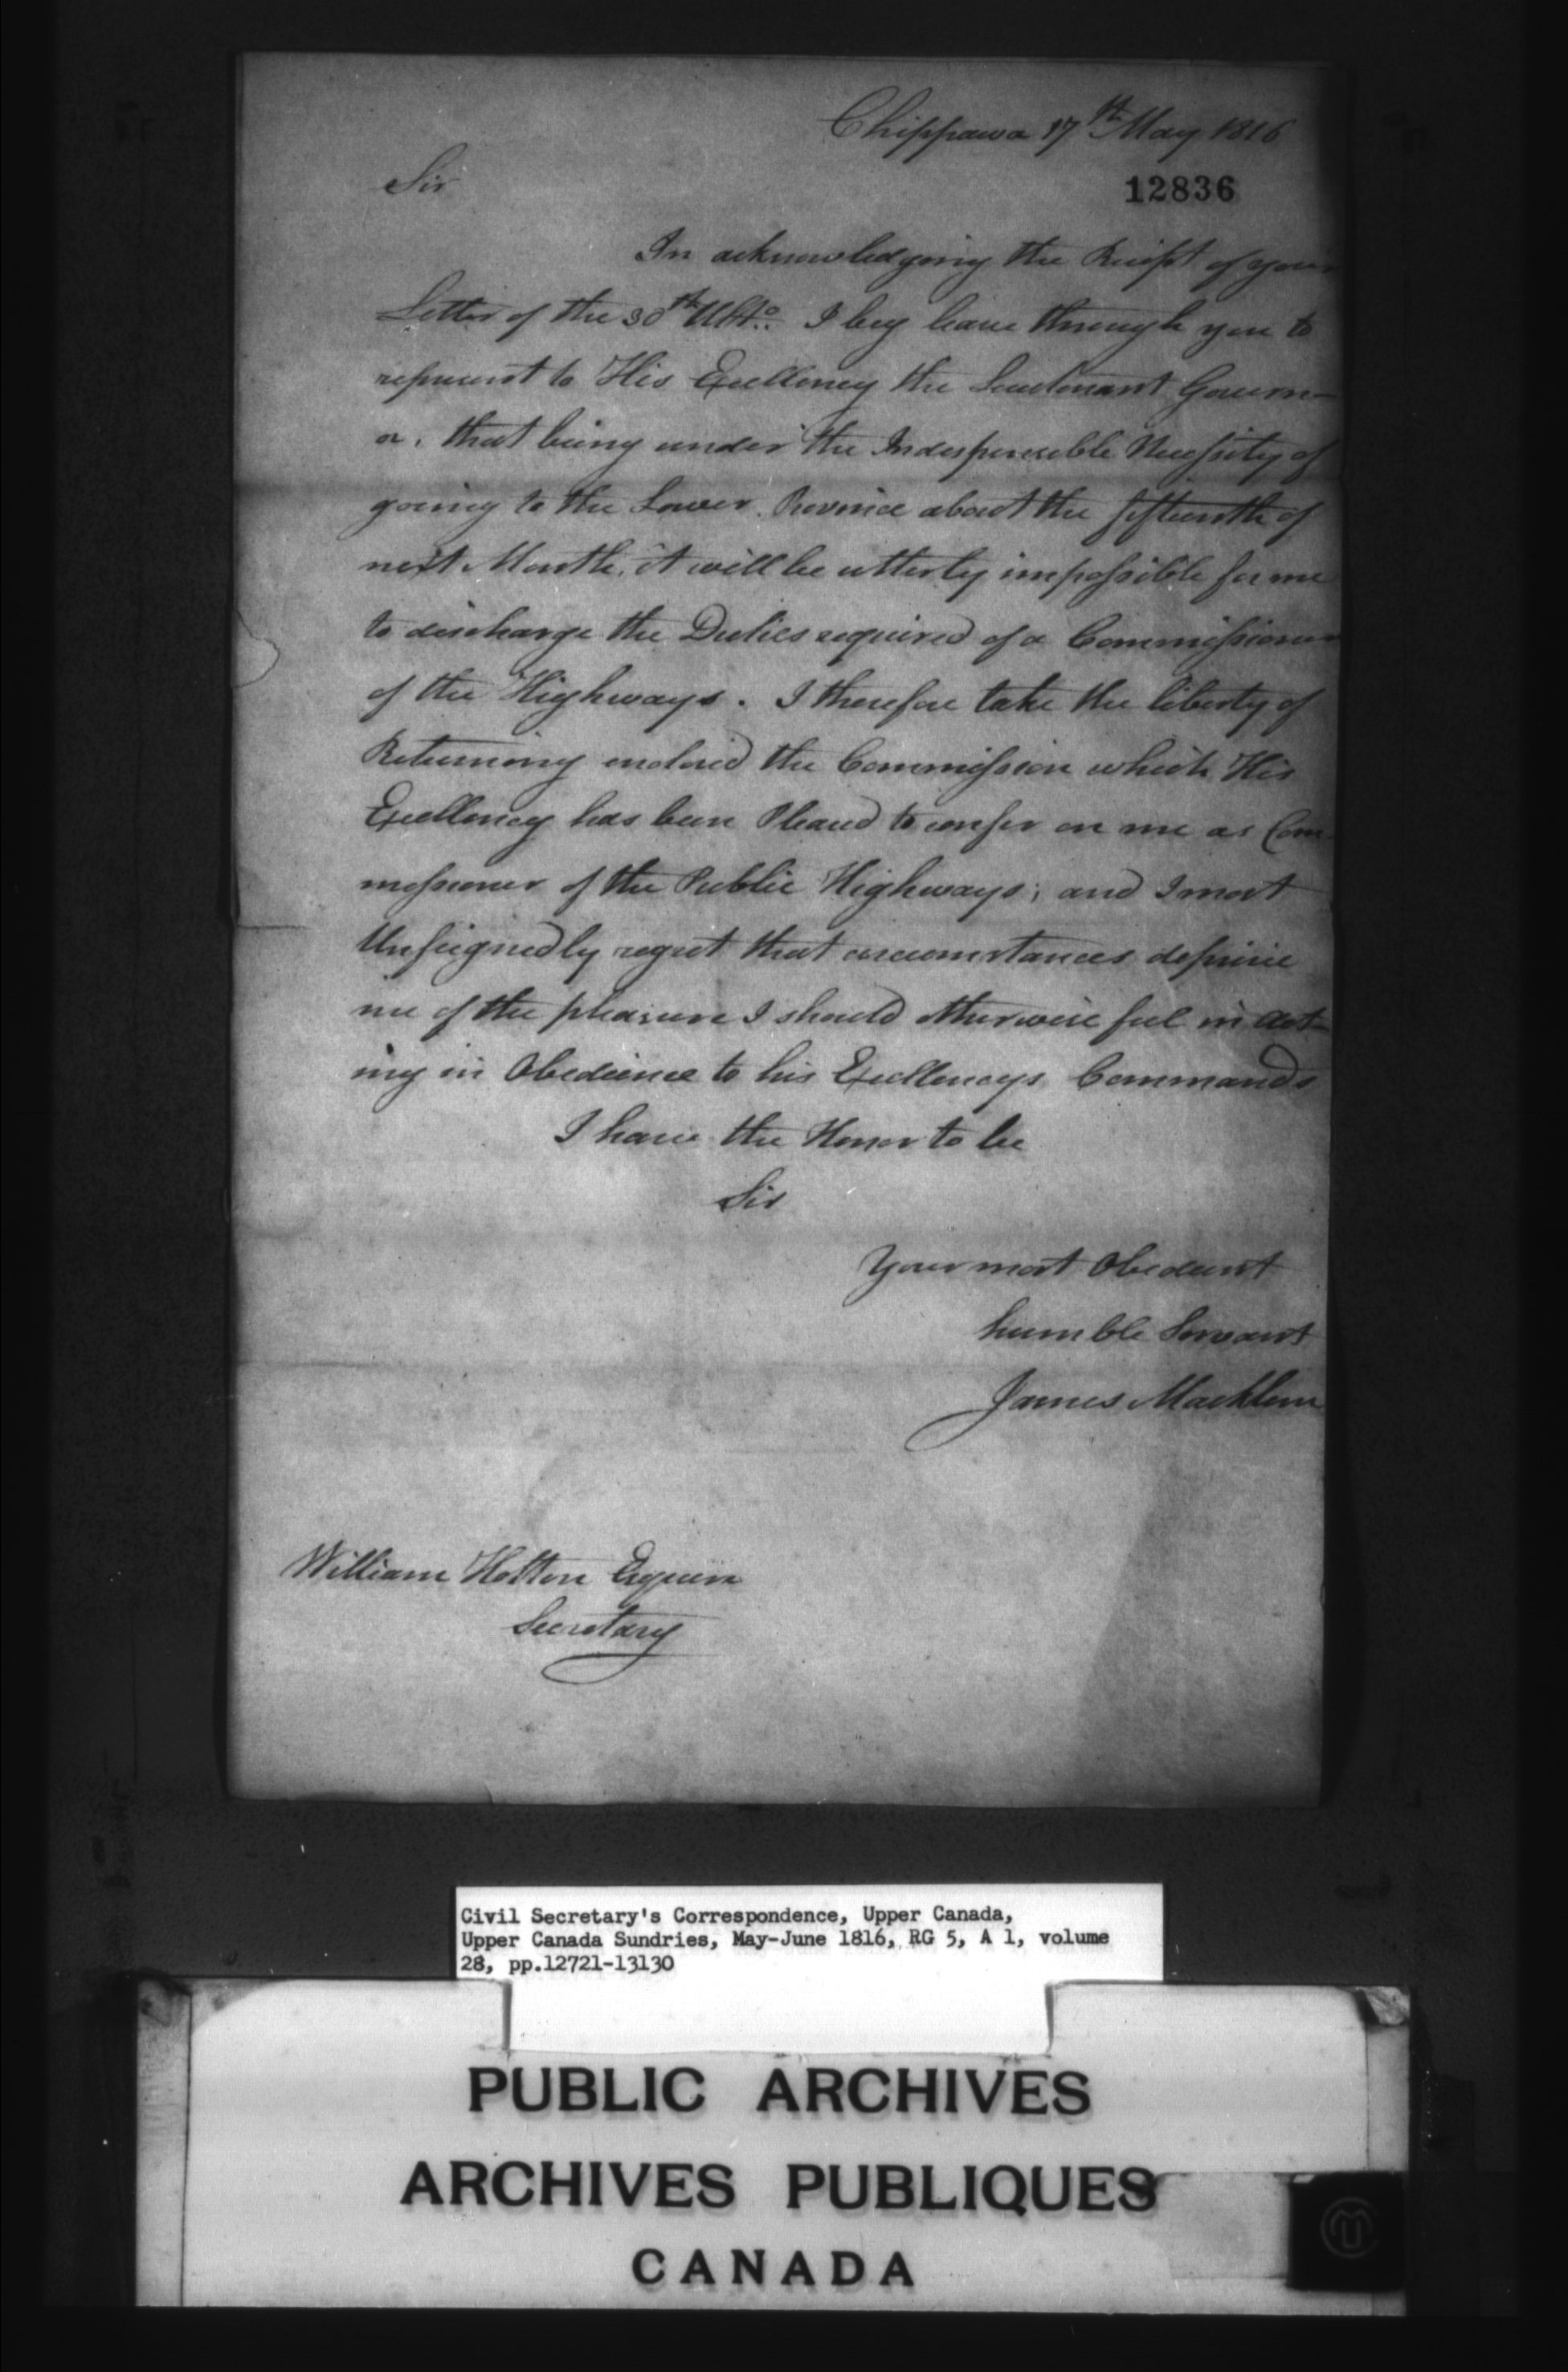 Chippawa 17th May 1816
Sir
12836
In acknowledging the Receipt of your
Letter of the 30th Ulto. I beg leave through you to
represent to His Excellency the Lieutenant Govern-
or, that being under the Indespensible Necessity of
going to the Lower Province about the fifteenth of
next Month, it will be utterly impossible for me
to discharge the Duties required of a Commissioner
of the Highways. I therefore take the liberty of
Returning enclosed the Commission which His
Excellency has been Pleased to confer on me as Com-
missioner of the Public Highways; and I most
Unfeignedly regret that circumstances deprive
me of the pleasure I should otherwise feel in Act-
ing in Obedience to his Excellencys Commands
I have the Honor to be
Sir
Your most Obedient
humble Servant
James Macklem
William Holton Esquire
Secretary
Civil Secretary's Correspondence, Upper Canada,
Upper Canada Sundries, May-June 1816, RG 5, A 1, volume
28, pp.12721-13130
PUBLIC ARCHIVES
ARCHIVES PUBLIQUES
CANADA